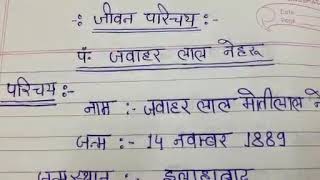 -: जीवन परिचय :-
पं. जवाहर लाल नेहरू
परिचय :-
नाम :- जवाहर लाल मोतीलाल ने
जन्म :- 14 नवम्बर 1889
जन्म स्थान :- इलाहाबाद
Date